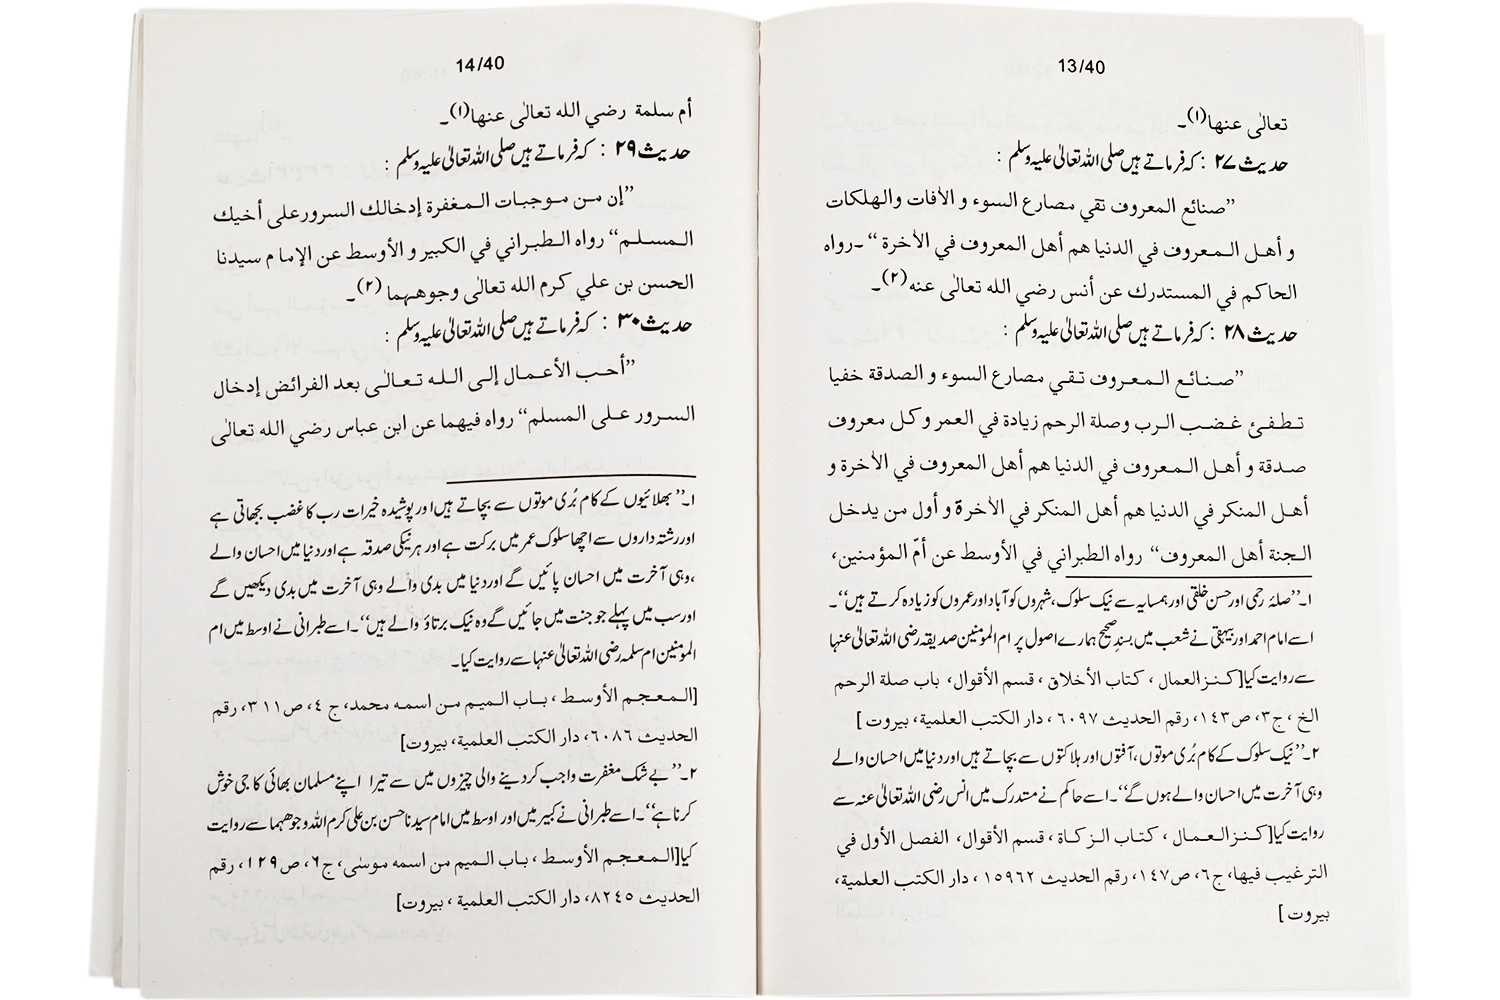 13/40
تعالٰی عنها(۱)۔
حدیث ۲۷ : کہ فرماتے ہیں صلی اللہ تعالیٰ علیہ وسلم :
”صنائع المعروف تقي مصارع السوء و الاٰفات والهلكات
و أهل المعروف في الدنيا هم أهل المعروف في الاٰخرة“ ۔رواه
الحاكم في المستدرك عن أنس رضي الله تعالى عنه(۲)۔
حدیث ۲۸ : کہ فرماتے ہیں صلی اللہ تعالیٰ علیہ وسلم :
”صنائع المعروف تقي مصارع السوء و الصدقة خفيا
تطفئ غضب الرب وصلة الرحم زيادة في العمر و كل معروف
صدقة و أهل المعروف في الدنيا هم أهل المعروف في الاٰخرة و
أهل المنكر في الدنيا هم أهل المنكر في الاٰخرة و أول من يدخل
الجنة أهل المعروف“ رواه الطبراني في الأوسط عن أمّ المؤمنين،
۱۔”صلۂ رحمی اور حسن خلقی اور ہمسایہ سے نیک سلوک، شہروں کو آباد اور عمروں کو زیادہ کرتے ہیں“۔
اسے امام احمد اور بیہقی نے شعب میں بسندِ صحیح ہمارے اصول پر ام المومنین صدیقہ رضی اللہ تعالیٰ عنہا
سے روایت کیا[كنز العمال ، كتاب الأخلاق ، قسم الأقوال، باب صلة الرحم
الخ ، ج۳، ص۱۴۳، رقم الحديث ۶۰۹۷ ، دار الكتب العلمية، بيروت ]
۲۔”نیک سلوک کے کام بُری موتوں، آفتوں اور ہلاکتوں سے بچاتے ہیں اور دنیا میں احسان والے
وہی آخرت میں احسان والے ہوں گے“۔اسے حاکم نے مستدرک میں انس رضی اللہ تعالیٰ عنہ سے
روایت کیا[كنز العمال ، كتاب الزكاة ، قسم الأقوال، الفصل الأول في
الترغيب فيها، ج۶، ص۱۴۷، رقم الحديث ۱۵۹۶۲ ، دار الكتب العلمية،
بيروت ]
14/40
أم سلمة رضي الله تعالٰى عنها(۱)۔
حدیث ۲۹ : کہ فرماتے ہیں صلی اللہ تعالیٰ علیہ وسلم :
”إن من موجبات المغفرة إدخالك السرورعلى أخيك
المسلم“ رواه الطبراني في الكبير و الأوسط عن الإما م سيدنا
الحسن بن علي كرم الله تعالٰى وجوههما (۲)۔
حدیث ۳۰ : کہ فرماتے ہیں صلی اللہ تعالیٰ علیہ وسلم :
”أحب الأعمال إلى الله تعالٰى بعد الفرائض إدخال
السرور على المسلم“ رواه فيهما عن ابن عباس رضي الله تعالٰى
۱۔”بھلائیوں کے کام بُری موتوں سے بچاتے ہیں اور پوشیدہ خیرات رب کا غضب بجھاتی ہے
اور رشتہ داروں سے اچھا سلوک عمر میں برکت ہے اور ہر نیکی صدقہ ہے اور دنیا میں احسان والے
،وہی آخرت میں احسان پائیں گے اور دنیا میں بدی والے وہی آخرت میں بدی دیکھیں گے
اور سب میں پہلے جو جنت میں جائیں گے وہ نیک برتاؤ والے ہیں“۔اسے طبرانی نے اوسط میں ام
المومنین ام سلمہ رضی اللہ تعالیٰ عنہا سے روایت کیا۔
[المعجم الأوسط ، باب الميم من اسمه محمد، ج ۴، ص۳۱۱، رقم
الحديث ۶۰۸۶، دار الكتب العلمية، بيروت]
۲۔”بے شک مغفرت واجب کر دینے والی چیزوں میں سے تیرا اپنے مسلمان بھائی کا جی خوش
کرنا ہے“۔اسے طبرانی نے کبیر میں اور اوسط میں امام سیدنا حسن بن علی کرم اللہ وجوھہما سے روایت
کیا[المعجم الأوسط ، باب الميم من اسمه موسٰى، ج۶، ص۱۲۹، رقم
الحديث ۸۲۴۵، دار الكتب العلمية ، بيروت]